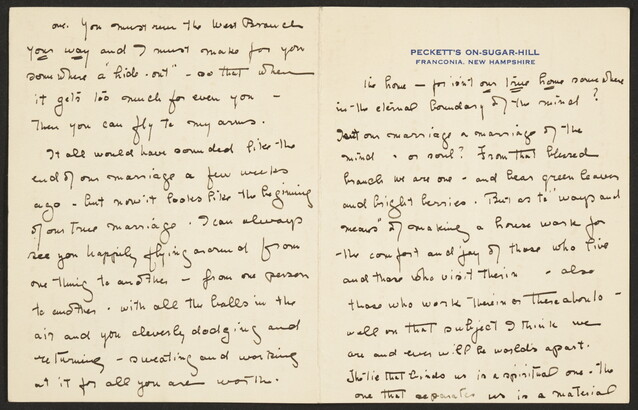 one. You must run the West Branch
your way and I must make for you
somewhere a "hide-out" - so that when
it gets too much for even you -
then you can fly to my arms.
It all would have sounded like the
end of our marriage a few weeks
ago - but now it looks like the beginning
of our true marriage. I can always
see you happily flying around from
one thing to another - from one person
to another - with all the balls in the
air and you cleverly dodging and
returning - sweating and working
at it for all you are worth.
PECKETT'S ON-SUGAR-HILL
FRANCONIA, NEW HAMPSHIRE
the home - for isn't our true home somewhere
in the eternal boundary of the mind?
Isn't our marriage a marriage of the
mind - or soul? From that blessed
branch we are one - and bear green leaves
and bright berries. But as to "ways and
means" of making a house work for
the comfort and joy of those who live
and those who visit therein - also
those who work therein or thereabouts -
well on that subject I think we
are and ever will be worlds apart.
The tie that binds us is a spiritual one. The
one that separates us is a material